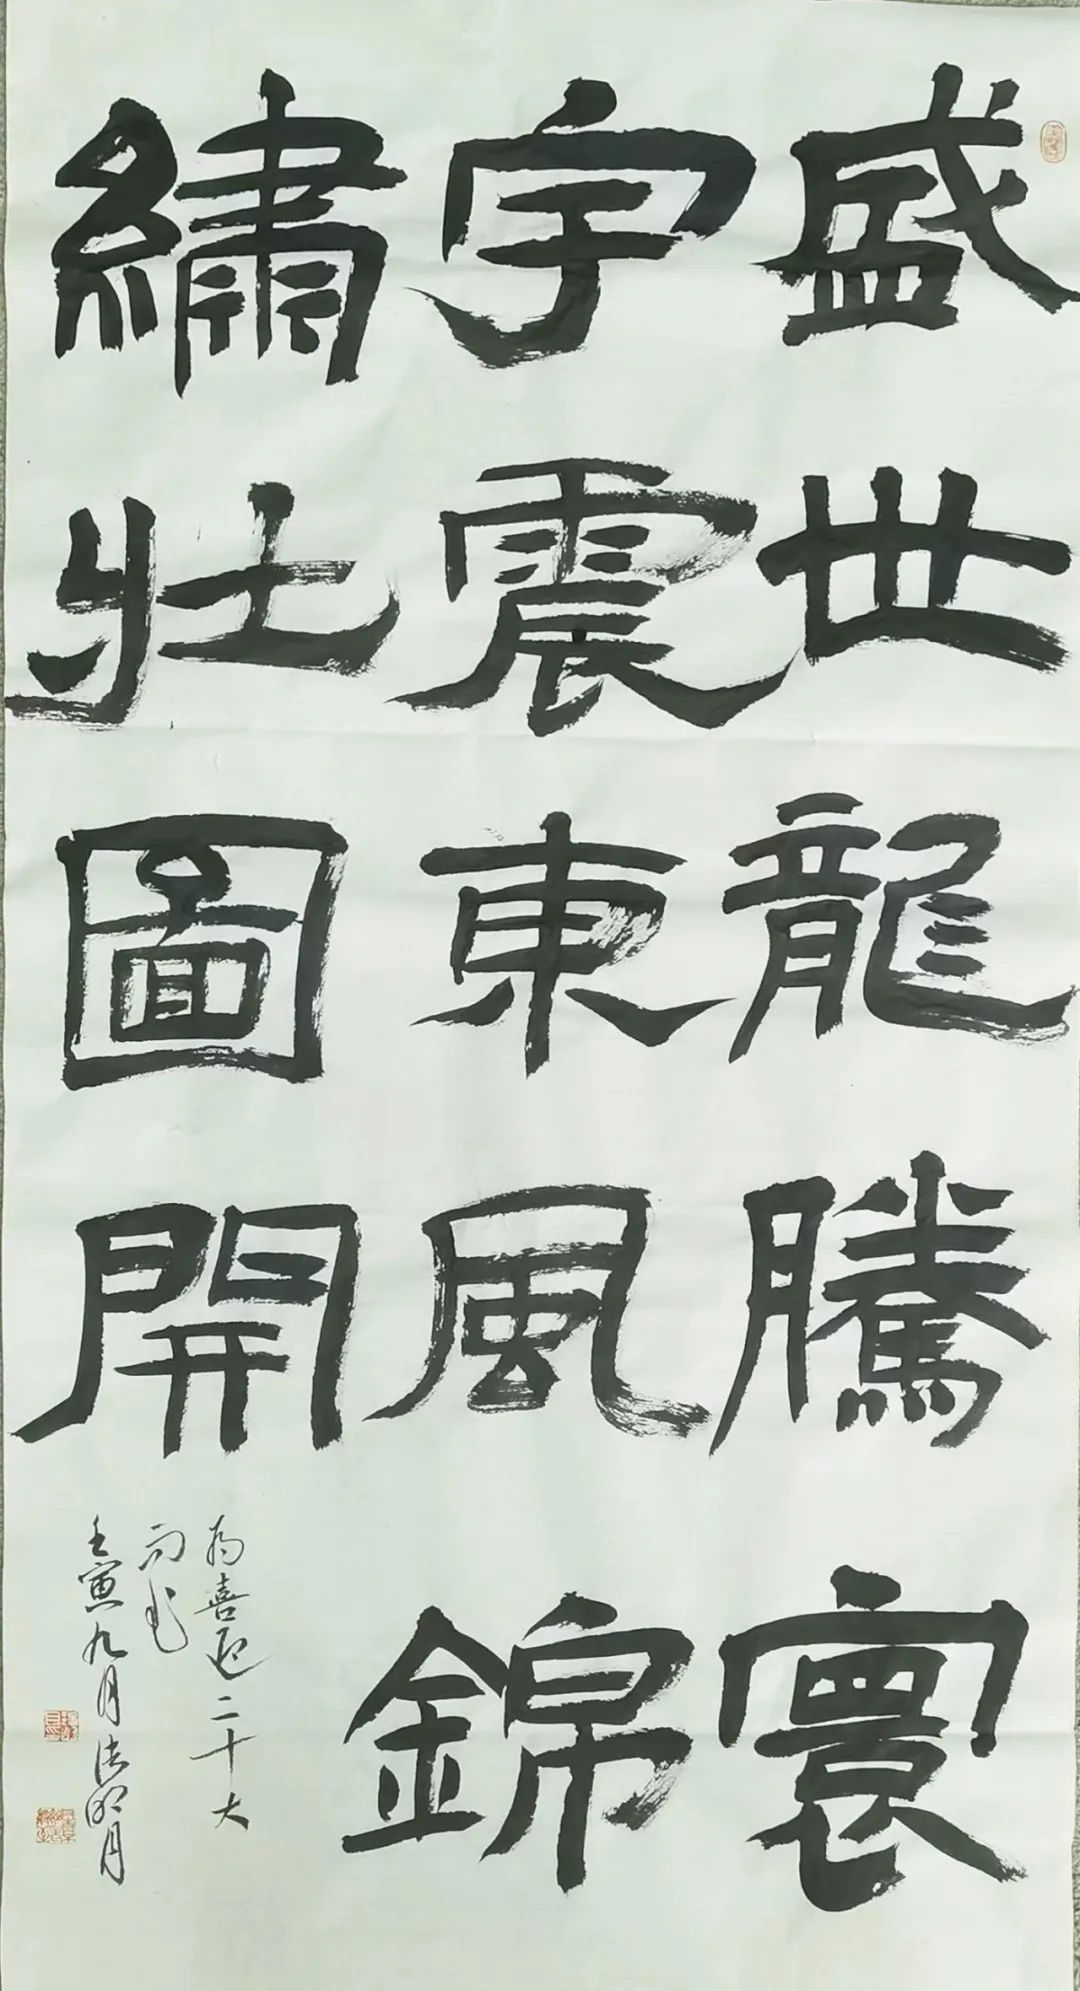 盛世龍騰寰
宇震東風錦
繡壯圖開
為喜迎二十大
而書
壬寅九月法明月